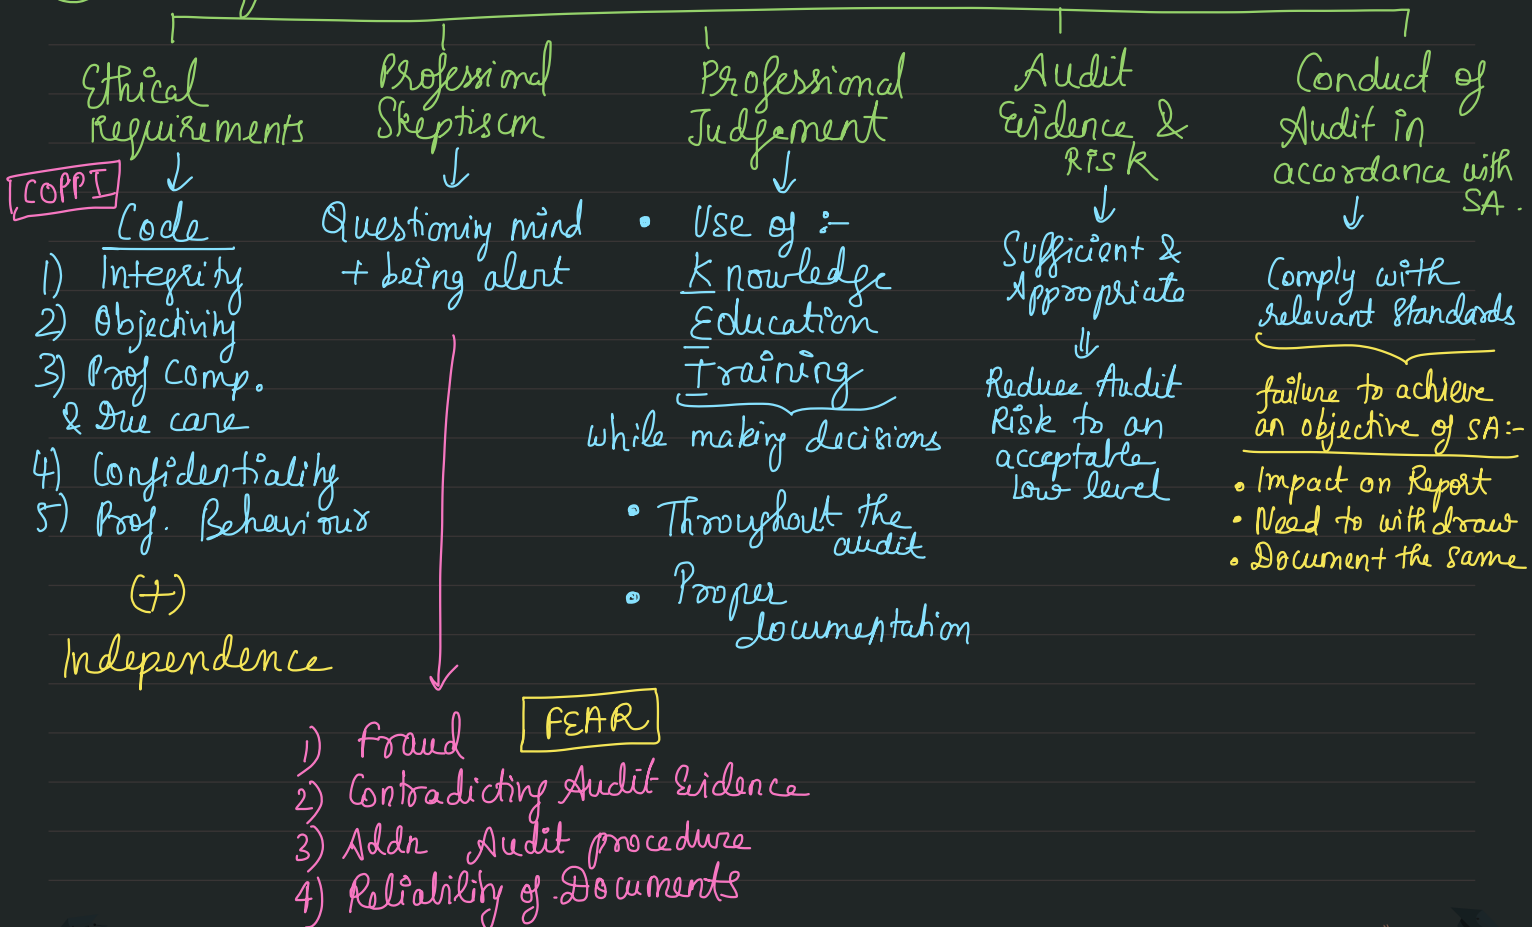 Ethical
Requirements
COPPI
Code
1) Integrity
2) Objectivity
3) Prof Comp.
& Due care
4) Confidentiality
5) Prof. Behaviour
(+)
Independence
Professional
Skeptiscm
Questioning mind
+ being alert
FEAR
1) Fraud
2) Contradicting Audit Evidence
3) Addn Audit procedure
4) Reliability of Documents
Professional
Judgement
• Use of :-
Knowledge
Education
Training
while making decisions
• Throughout the
audit
• Proper
documentation
Audit
Evidence &
Risk
Sufficient &
Appropriate
Reduce Audit
Risk to an
acceptable
Low level
Conduct of
Audit in
accordance with
SA.
Comply with
relevant Standards
failure to achieve
an objective of SA:-
• Impact on Report
• Need to withdraw
• Document the same